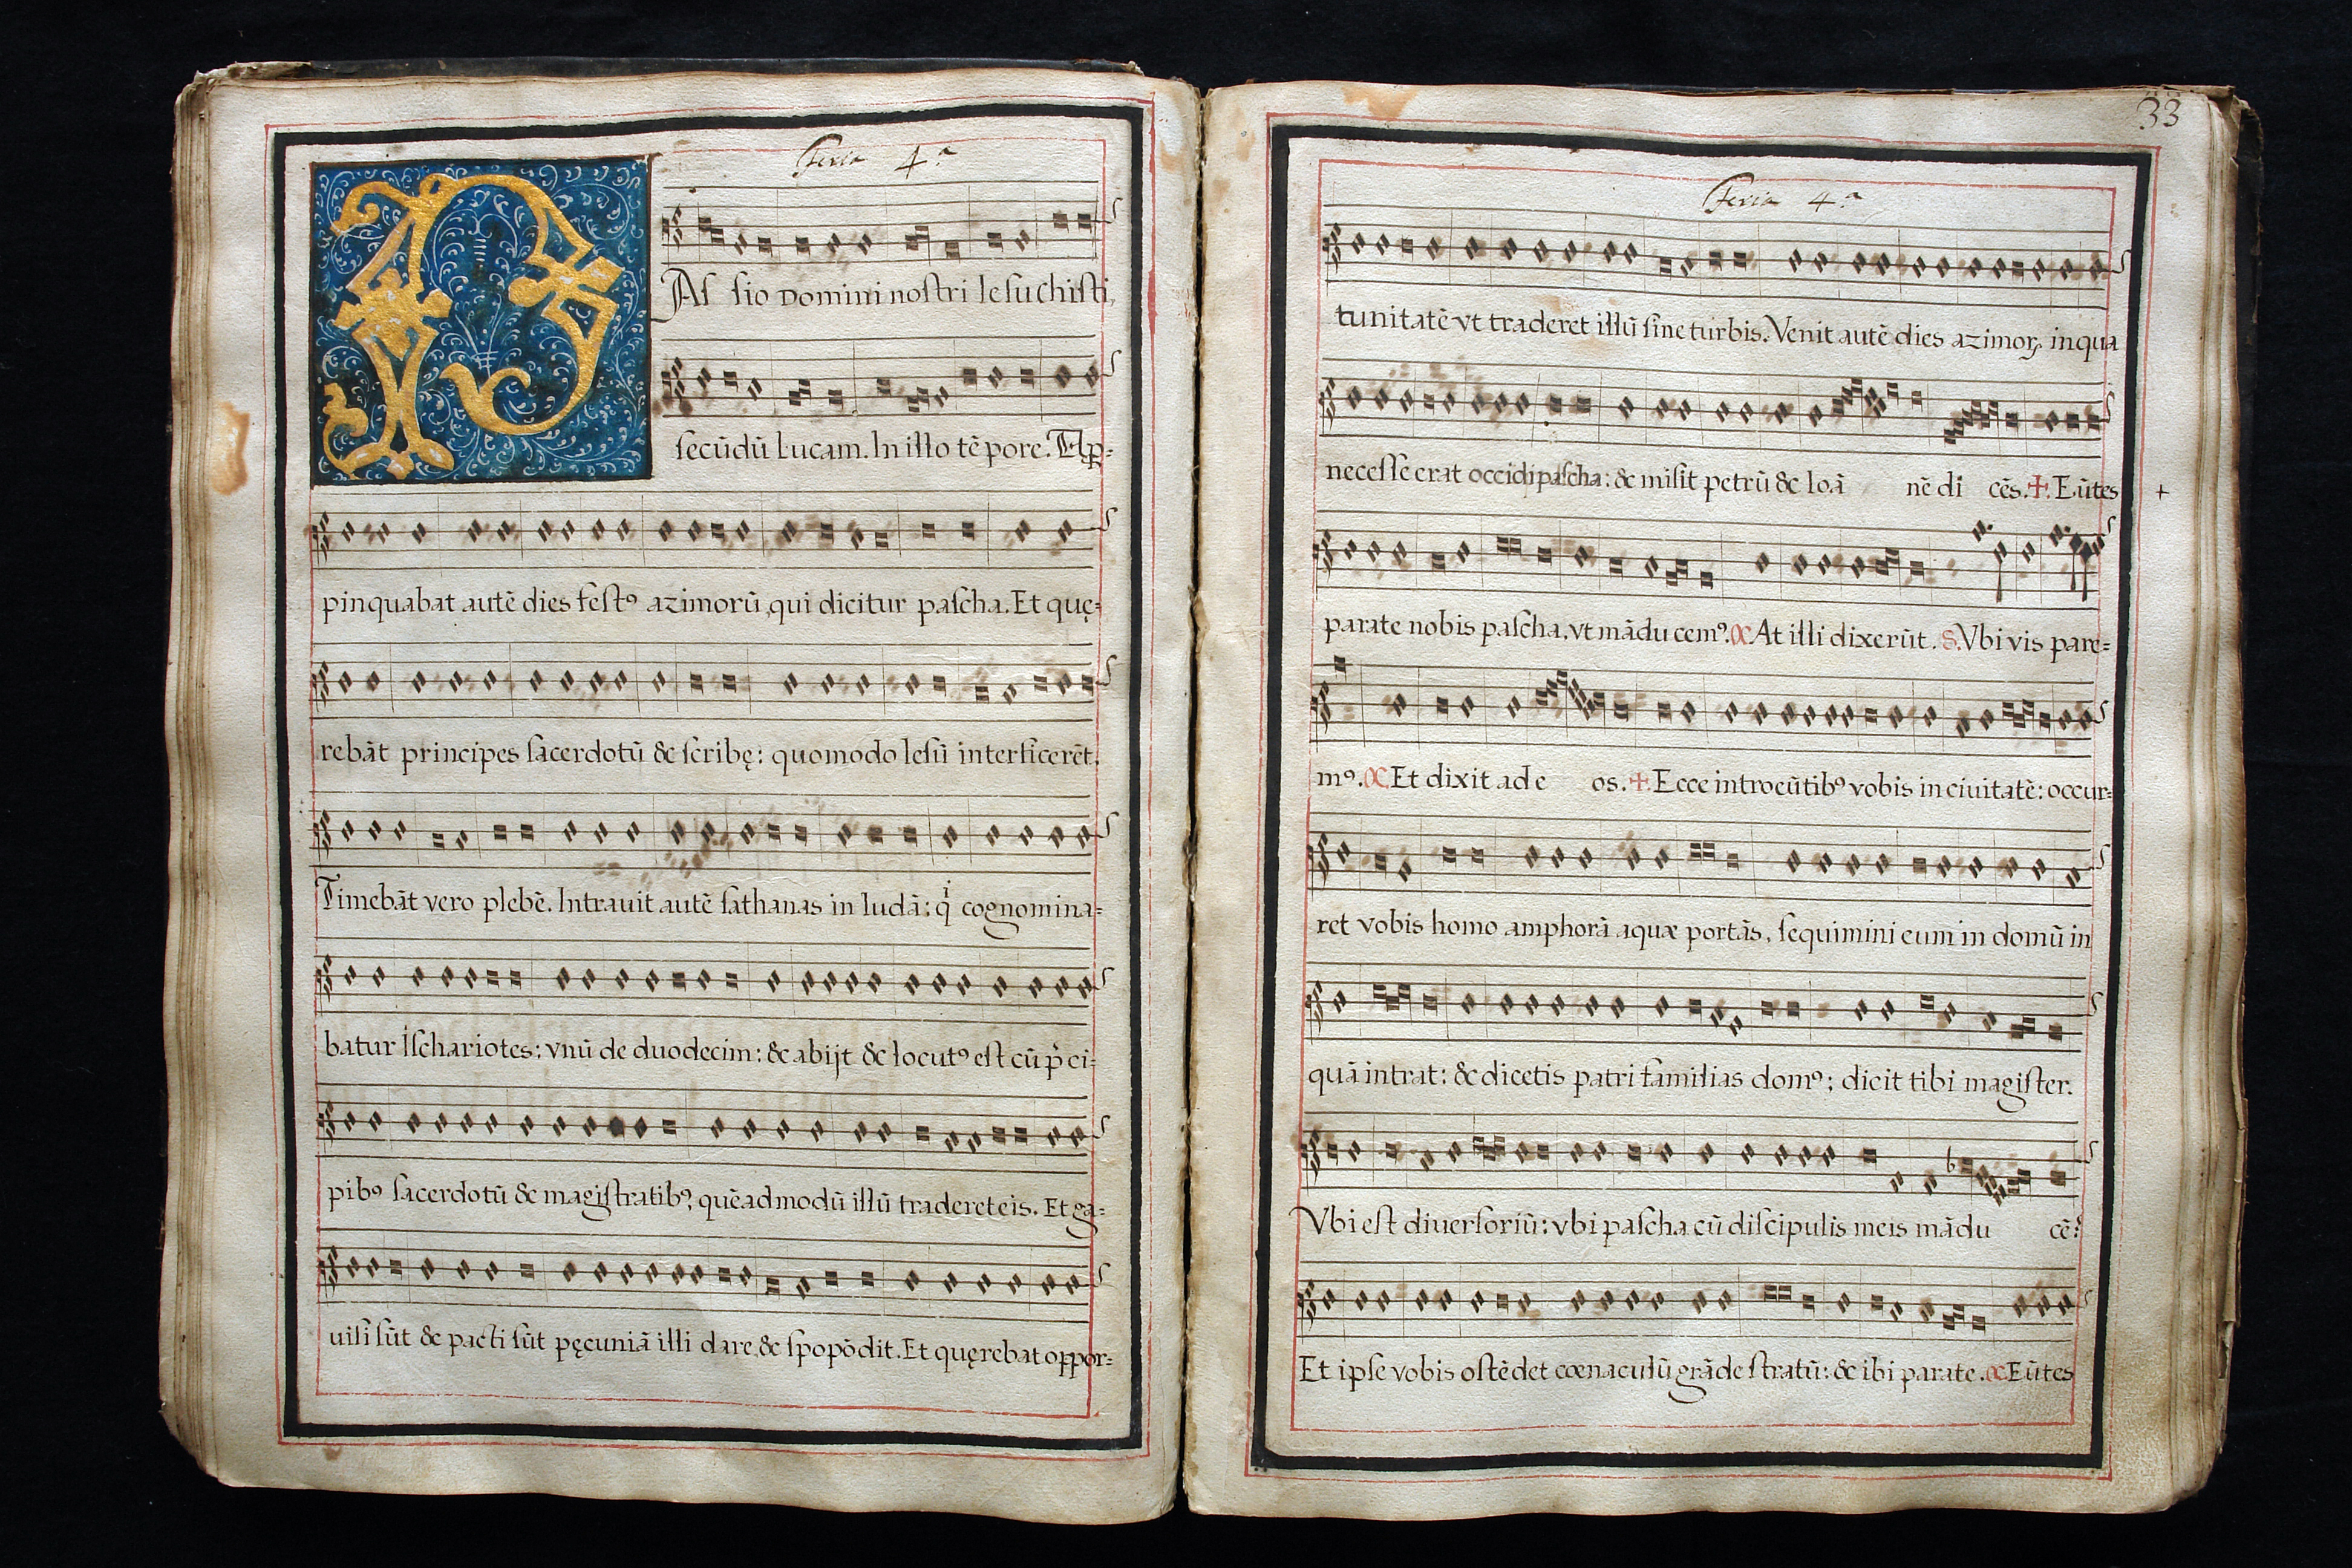 Feria 4.ª
PAſ ſio Domini noſtri Ieſu chiſti,
ſecūdū Lucam. In illo tēpore. Apꝓ=
pinquabat autē dies feſtꝰ azimorū, qui dicitur paſcha. Et quę=
rebāt principes ſacerdotū & ſcribę: quomodo Ieſū interficerēt.
Timebāt vero plebē. Intrauit autē ſathanas in Iudā: qͥ cognomina=
batur Iſchariotes: vnū de duodecim: & abijt & locutꝰ eſt cū pͥ ci=
pibꝰ ſacerdotū & magiſtratibꝰ, quēadmodū illū traderet eis. Et ga=
uiſi ſūt & pacti ſūt pęcuniā illi dare, & ſpopōdit. Et quęrebat oppor=
33
Feria 4.ª
tunitatē vt traderet illū ſine turbis. Venit autē dies azimoꝝ, in qua
neceſſe erat occidi paſcha: & miſit petrū & Ioā nē di cēs. ✝. Eūtes +
parate nobis paſcha, vt mādu cemꝰ. C At illi dixerūt. S. Vbi vis pare=
mꝰ. C Et dixit ad e os. ✝. Ecce introeūtibꝰ vobis in ciuitatē: occur=
ret vobis homo amphorā aquæ portās, ſequimini eum in domū in
quā intrat: & dicetis patri familias domꝰ; dicit tibi magiſter.
Vbi eſt diuerſoriū: vbi paſcha cū diſcipulis meis mādu cē?
Et ipſe vobis oſtēdet cœnaculū grāde ſtratū: & ibi parate. C Eūtes